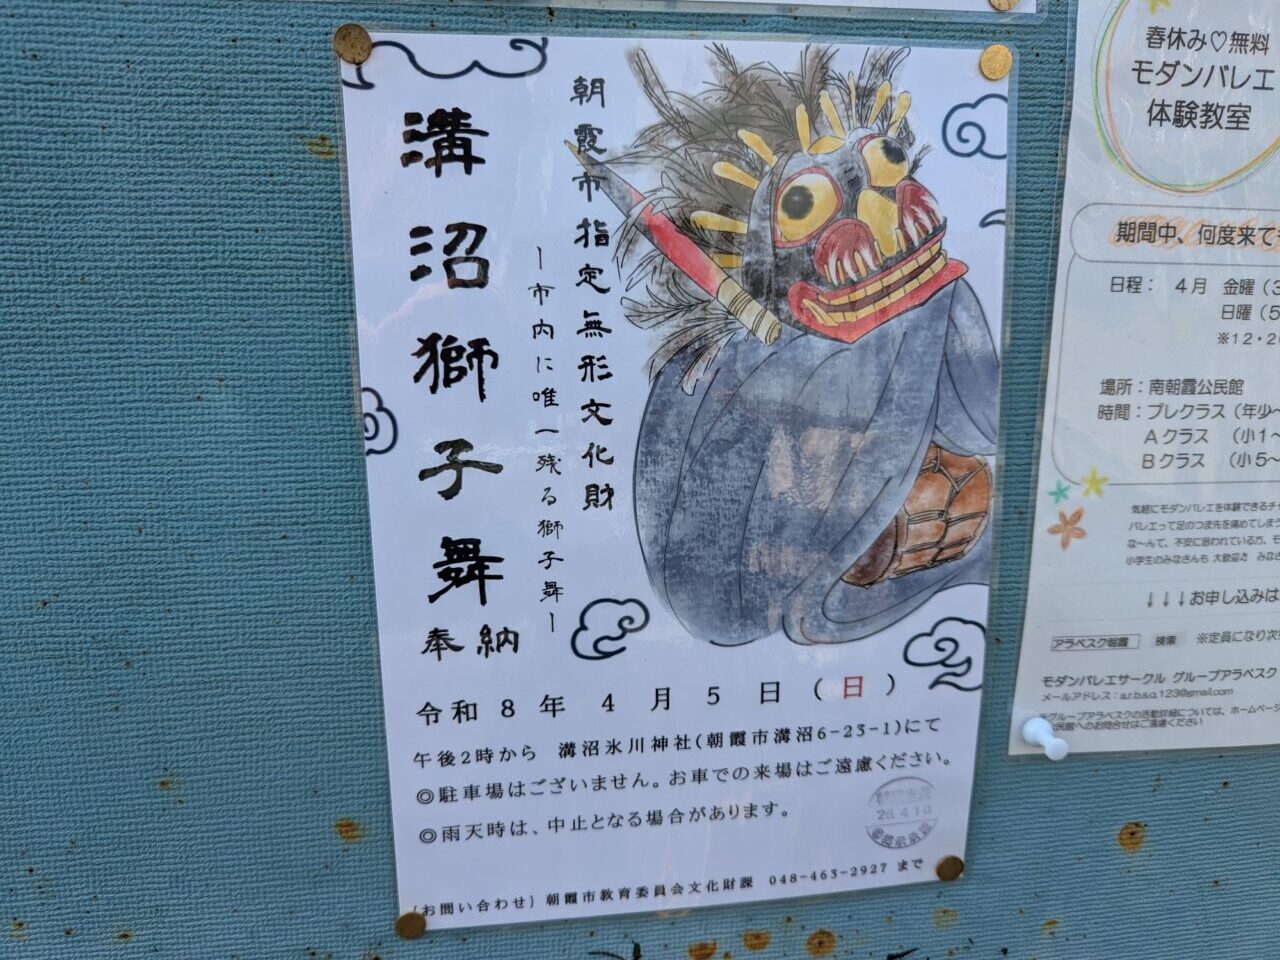 朝霞市指定無形文化財
―市内に唯一残る獅子舞―
溝沼獅子舞
奉納
令和8年4月5日(日)
午後2時から 溝沼氷川神社(朝霞市溝沼6-23-1)にて
◎駐車場はございません。お車での来場はご遠慮ください。
◎雨天時は、中止となる場合があります。
26.4.10
{お問い合わせ} 朝霞市教育委員会文化財課 048-463-2927 まで
春休み♡無料
モダンバレエ
体験教室
期間中、何度来て
日程: 4月 金曜(3
日曜(5
※12・2
場所:南朝霞公民館
時間:プレクラス(年少~
Aクラス (小1~
Bクラス (小5~
気軽にモダンバレエを体験できるチ
バレエって足のつま先を痛めてしま
な~んて、不安に思われている方、モ
小学生のみなさんも 大歓迎♬ みな
↓↓↓お申し込みは
アラベスク朝霞 検索 ※定員になり次
モダンバレエサークル グループアラベスク
メールアドレス:a.r.b.s.q.123@gmail.com
グループアラベスクの活動詳細については、ホームペー
公民館へのお問合せはご遠慮ください